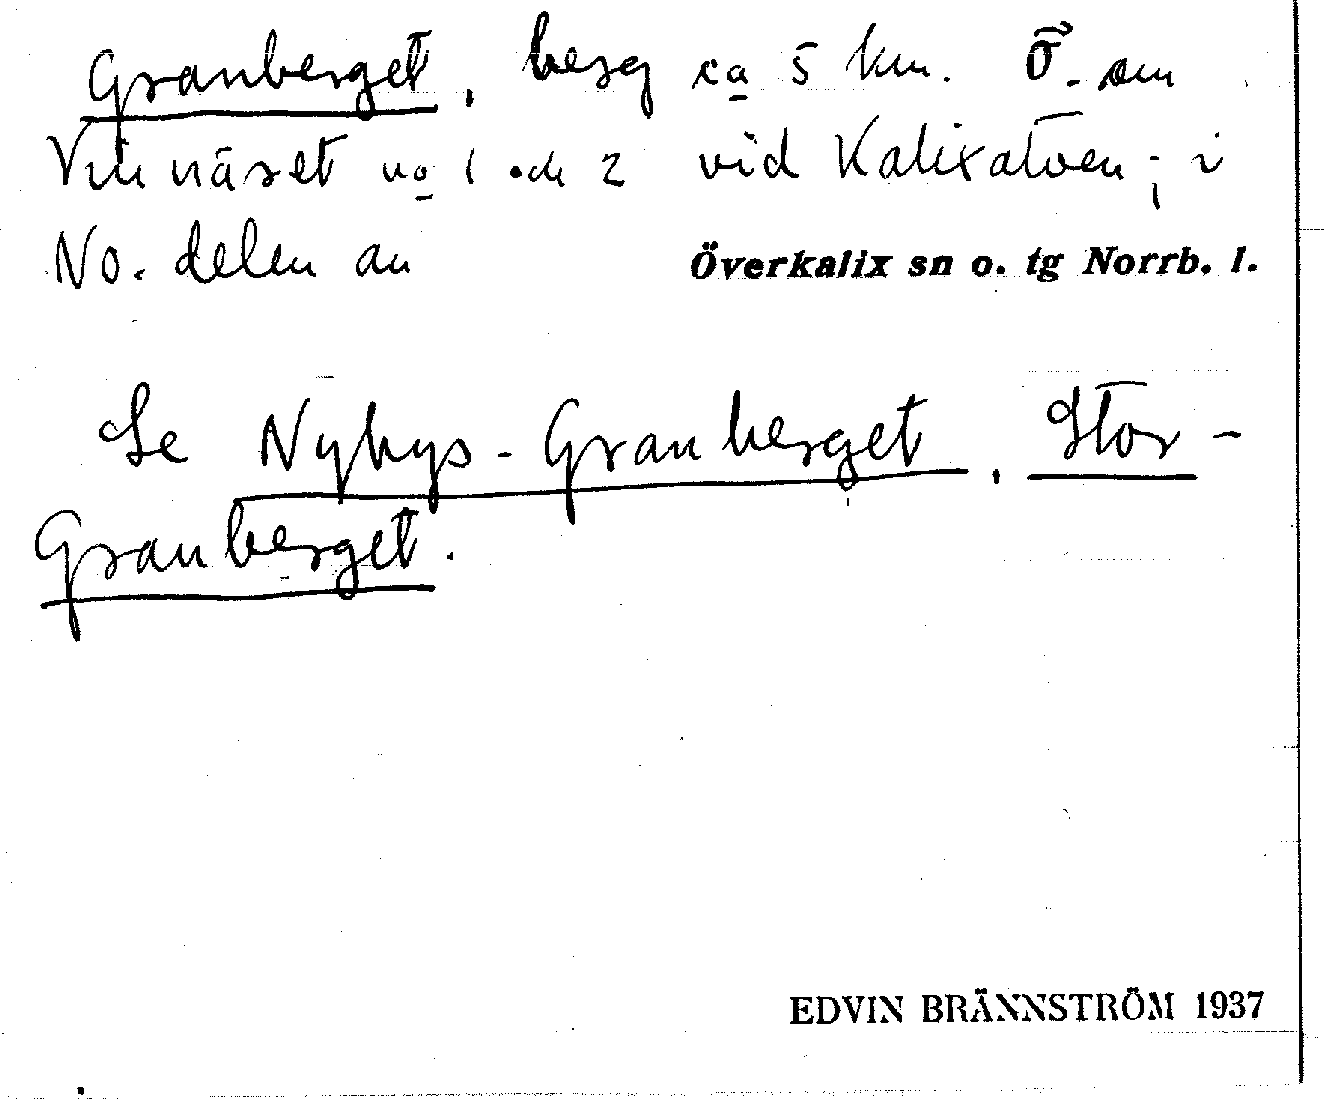 Granberget, berg ca 5 km. Ö. om
Vinnäset no 1 och 2 vid Kalixälven; i
No. delen av Överkalix sn o. tg Norrb. l.
Se Nybys-Granberget, Stor-
Granberget.
EDVIN BRÄNNSTRÖM 1937